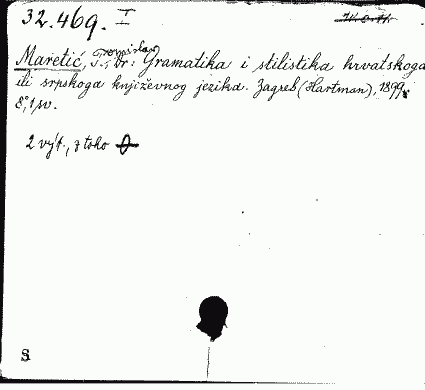 32.469. I
Maretić, T., Dr: Gramatika i stilistika hrvatskoga
Tomislav
ili srpskoga književnog jezika. Zagreb (Hartman), 1899.
8°, 1 sv.
2 výt., z toho
S